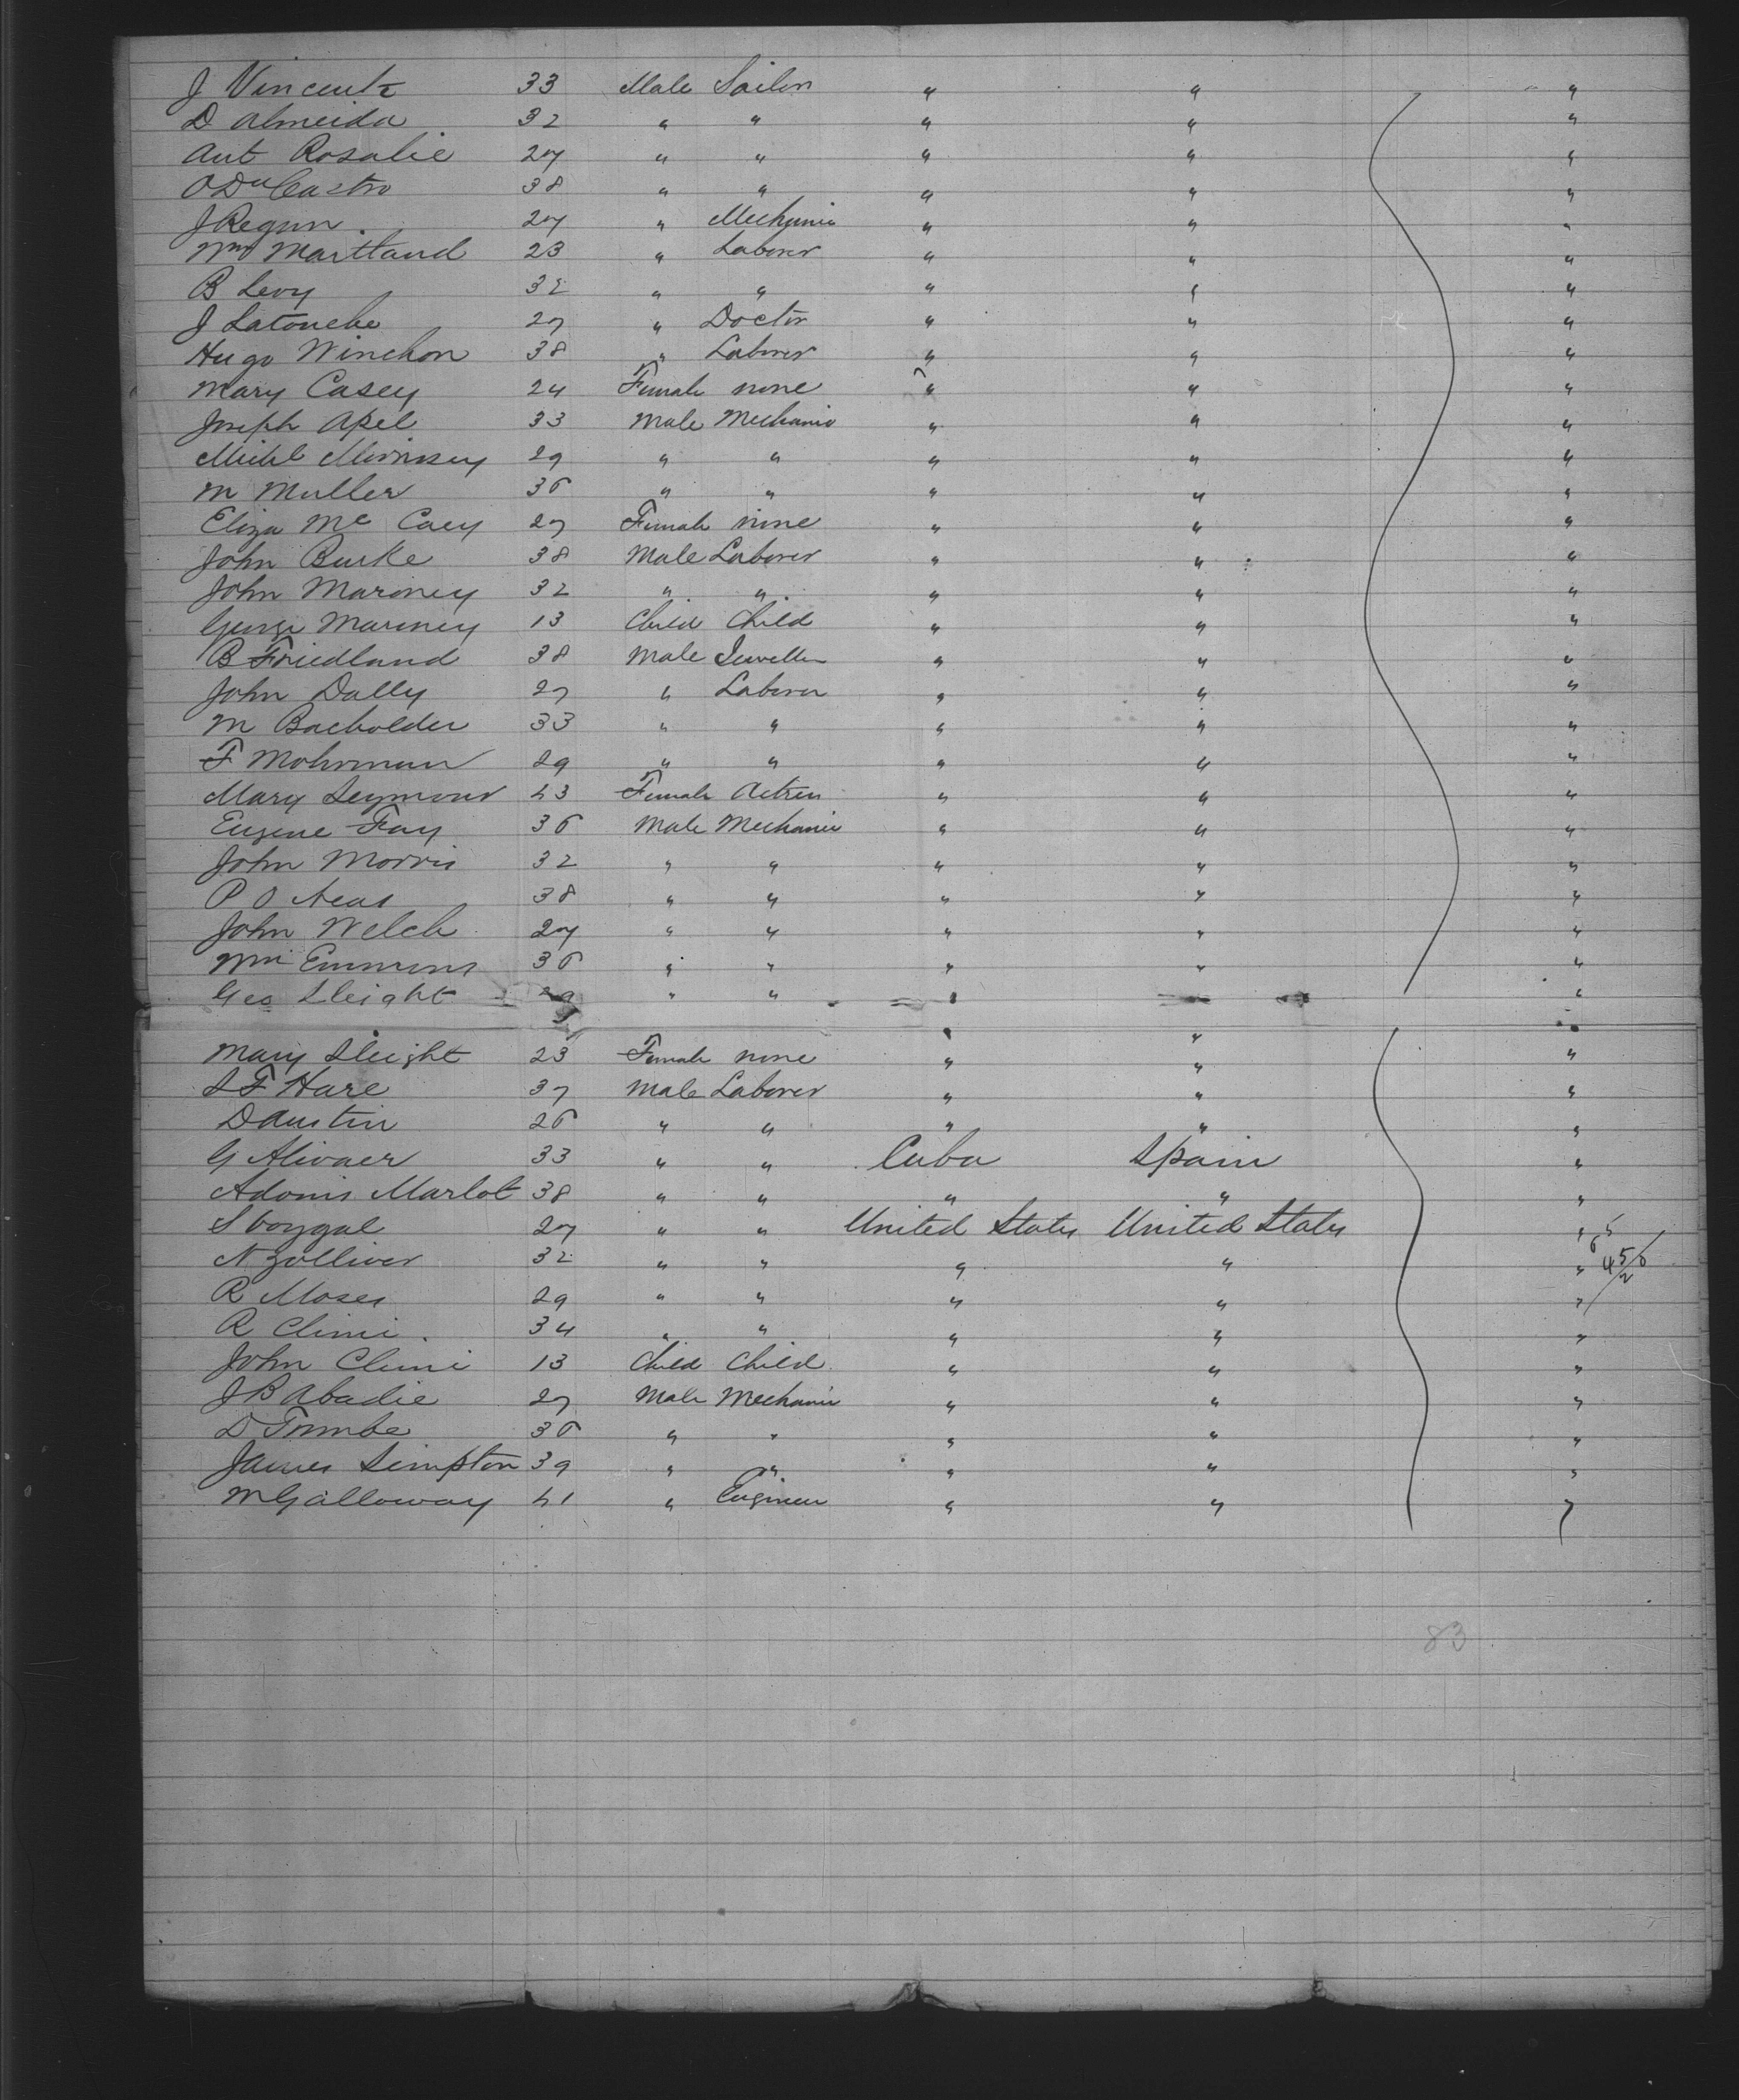 J Vincent 33 Male Sailor " " "
D Almeida 32 " " " " "
Ant Rosalie 27 " " " " "
O Du Castro 38 " " " " "
J Regun 27 " Mechanic " " "
Wm Martland 23 " Laborer " " "
B Levy 32 " " " " "
J Latouche 27 " Doctor " " "
Hugo Winchon 38 " Laborer " " "
Mary Casey 24 Female none " " "
Joseph Apel 33 Male Mechanic " " "
Michl 29 " " " " "
M Muller 36 " " " " "
Eliza Mc Caey 27 Female none " " "
John Burke 38 Male Laborer " " "
John Maroney 32 " " " " "
George Maroney 13 Child Child " " "
B Friedland 38 Male Jeweller " " "
John Dally 27 " Laborer " " "
M Bacholder 33 " " " " "
F Mohrman 29 " " " " "
Mary Seymour 43 Female Actress " " "
Eugene Fay 36 Male Mechanic " " "
John Morris 32 " " " " "
P O Neas 38 " " " " "
John Welch 27 " " " " "
Wm Emmons 36 " " " " "
Geo Sleight 29 " " " " "
" " "
Mary Sleight 23 Female none " " "
S F Hare 37 Male Laborer " " "
D Austin 26 " " " " "
G Alivaer 33 " " Cuba Spain "
Adonis Marlot 38 " " " " "
27 " " United States United States "
N Zolliver 32 " " " " "
R Moses 29 " " " " "
R Clini 34 " " " " "
John Clini 13 Child Child " " "
J B Abadie 27 Male Mechanic " " "
D Trombe 36 " " " " "
James Simpston 39 " " " " "
M Galloway 41 " Engineer " " "
83